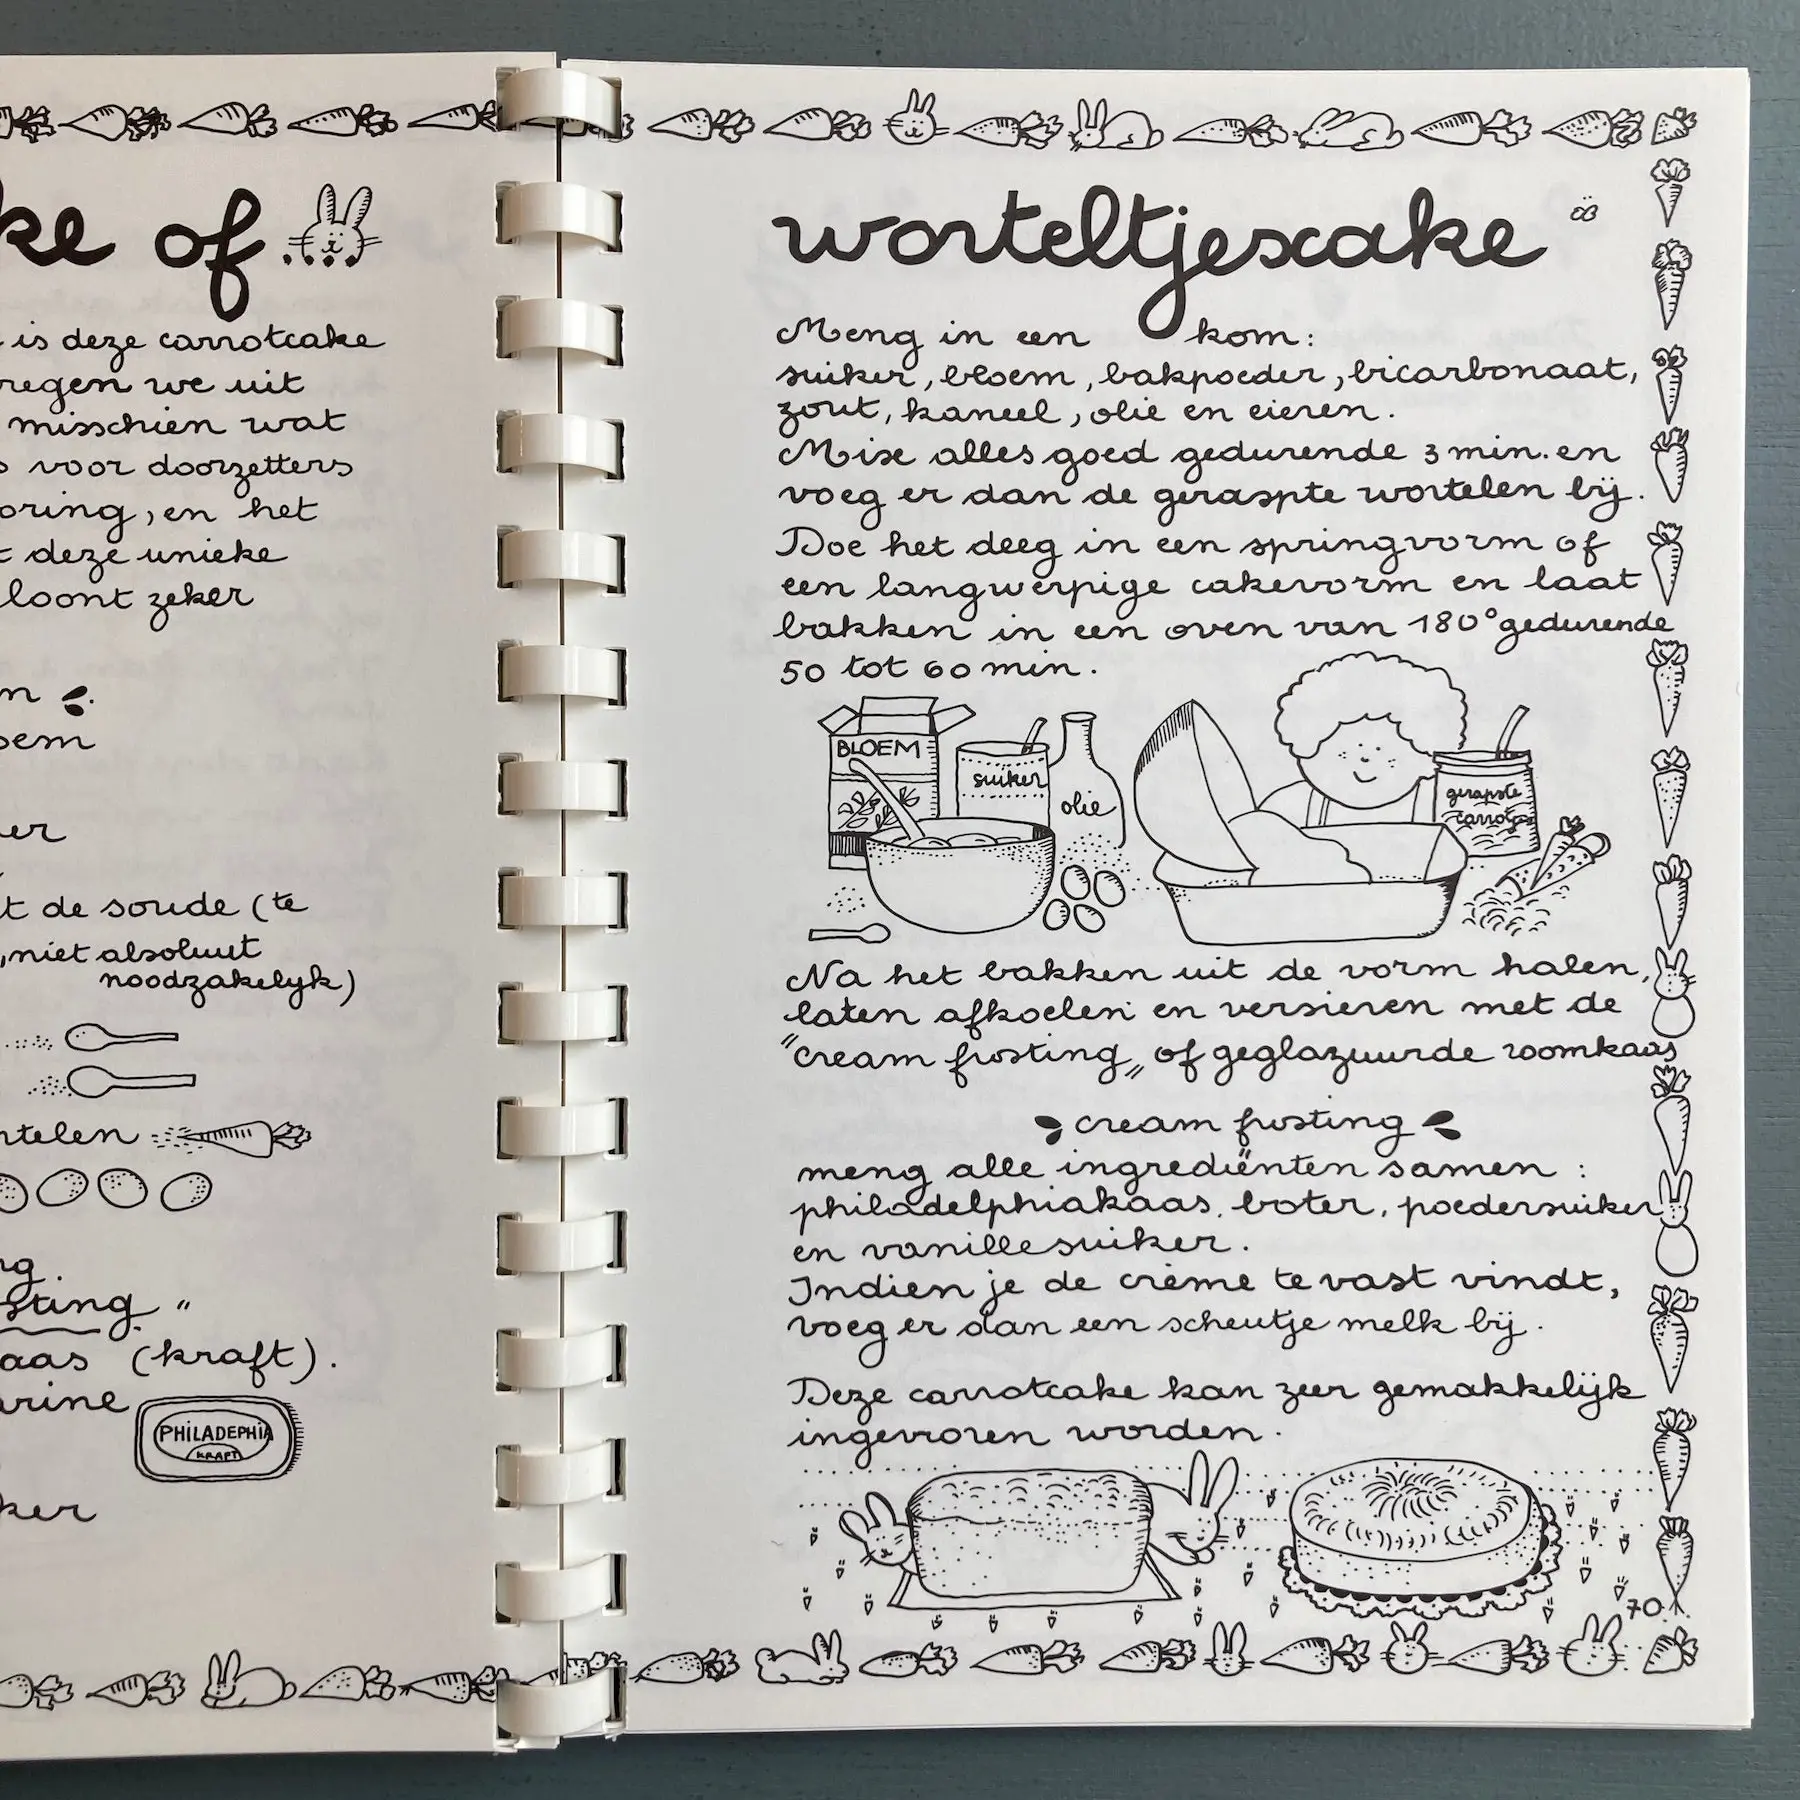 ke of ....
is deze carrotcake
regen we uit
misschien wat
s voor doorzetters
oring, en het
t deze unieke
loont zeker
n
oem
er
t de soude (te
, niet absoluut
noodzakelijk)
rtelen
ng.
sting "
aas (kraft).
arine
PHILADEPHIA
KRAFT
ker
worteltjescake
Meng in een kom:
suiker, bloem, bakpoeder, bicarbonaat,
zout, kaneel, olie en eieren.
Mix alles goed gedurende 3 min. en
voeg er dan de geraspte wortelen bij.
Doe het deeg in een springvorm of
een langwerpige cakevorm en laat
bakken in een oven van 180° gedurende
50 tot 60 min.
BLOEM
suiker
olie
geraspte
carrotjes
Na het bakken uit de vorm halen,
laten afkoelen en versieren met de
"cream frosting" of geglazuurde roomkaas
cream frosting
meng alle ingrediënten samen :
philadelphiakaas, boter, poedersuiker
en vanillesuiker.
Indien je de crème te vast vindt,
voeg er dan een scheutje melk bij.
Deze carrotcake kan zeer gemakkelijk
ingevroren worden.
70.